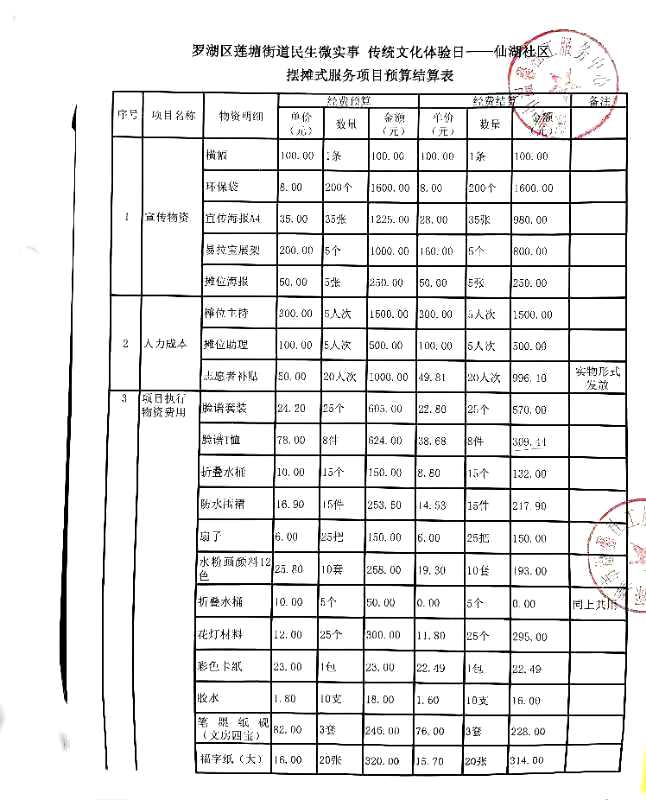 罗湖区莲塘街道民生微实事 传统文化体验日——仙湖社区
摆摊式服务项目预算结算表
序号 项目名称 物资明细 经费预算 经费结算 备注
单价（元） 数量 金额（元） 单价（元） 数量 金额（元）
1 宣传物资 横幅 100.00 1条 100.00 100.00 1条 100.00
环保袋 8.00 200个 1600.00 8.00 200个 1600.00
宣传海报A4 35.00 35张 1225.00 28.00 35张 980.00
易拉宝展架 200.00 5个 1000.00 160.00 5个 800.00
摊位海报 50.00 5张 250.00 50.00 5张 250.00
2 人力成本 摊位主持 300.00 5人次 1500.00 300.00 5人次 1500.00
摊位助理 100.00 5人次 500.00 100.00 5人次 500.00
志愿者补贴 50.00 20人次 1000.00 49.81 20人次 996.10 实物形式发放
3 项目执行物资费用 脸谱套装 24.20 25个 605.00 22.80 25个 570.00
脸谱T恤 78.00 8件 624.00 38.68 8件 309.44
折叠水桶 10.00 15个 150.00 8.80 15个 132.00
防水围裙 16.90 15件 253.50 14.53 15件 217.90
扇子 6.00 25把 150.00 6.00 25把 150.00
水粉画颜料12色 25.80 10套 258.00 19.30 10套 193.00
折叠水桶 10.00 5个 50.00 0.00 5个 0.00 同上共用
花灯材料 12.00 25个 300.00 11.80 25个 295.00
彩色卡纸 23.00 1包 23.00 22.49 1包 22.49
胶水 1.80 10支 18.00 1.60 10支 16.00
笔墨纸砚（文房四宝） 82.00 3套 246.00 76.00 3套 228.00
福字纸（大） 16.00 20张 320.00 15.70 20张 314.00